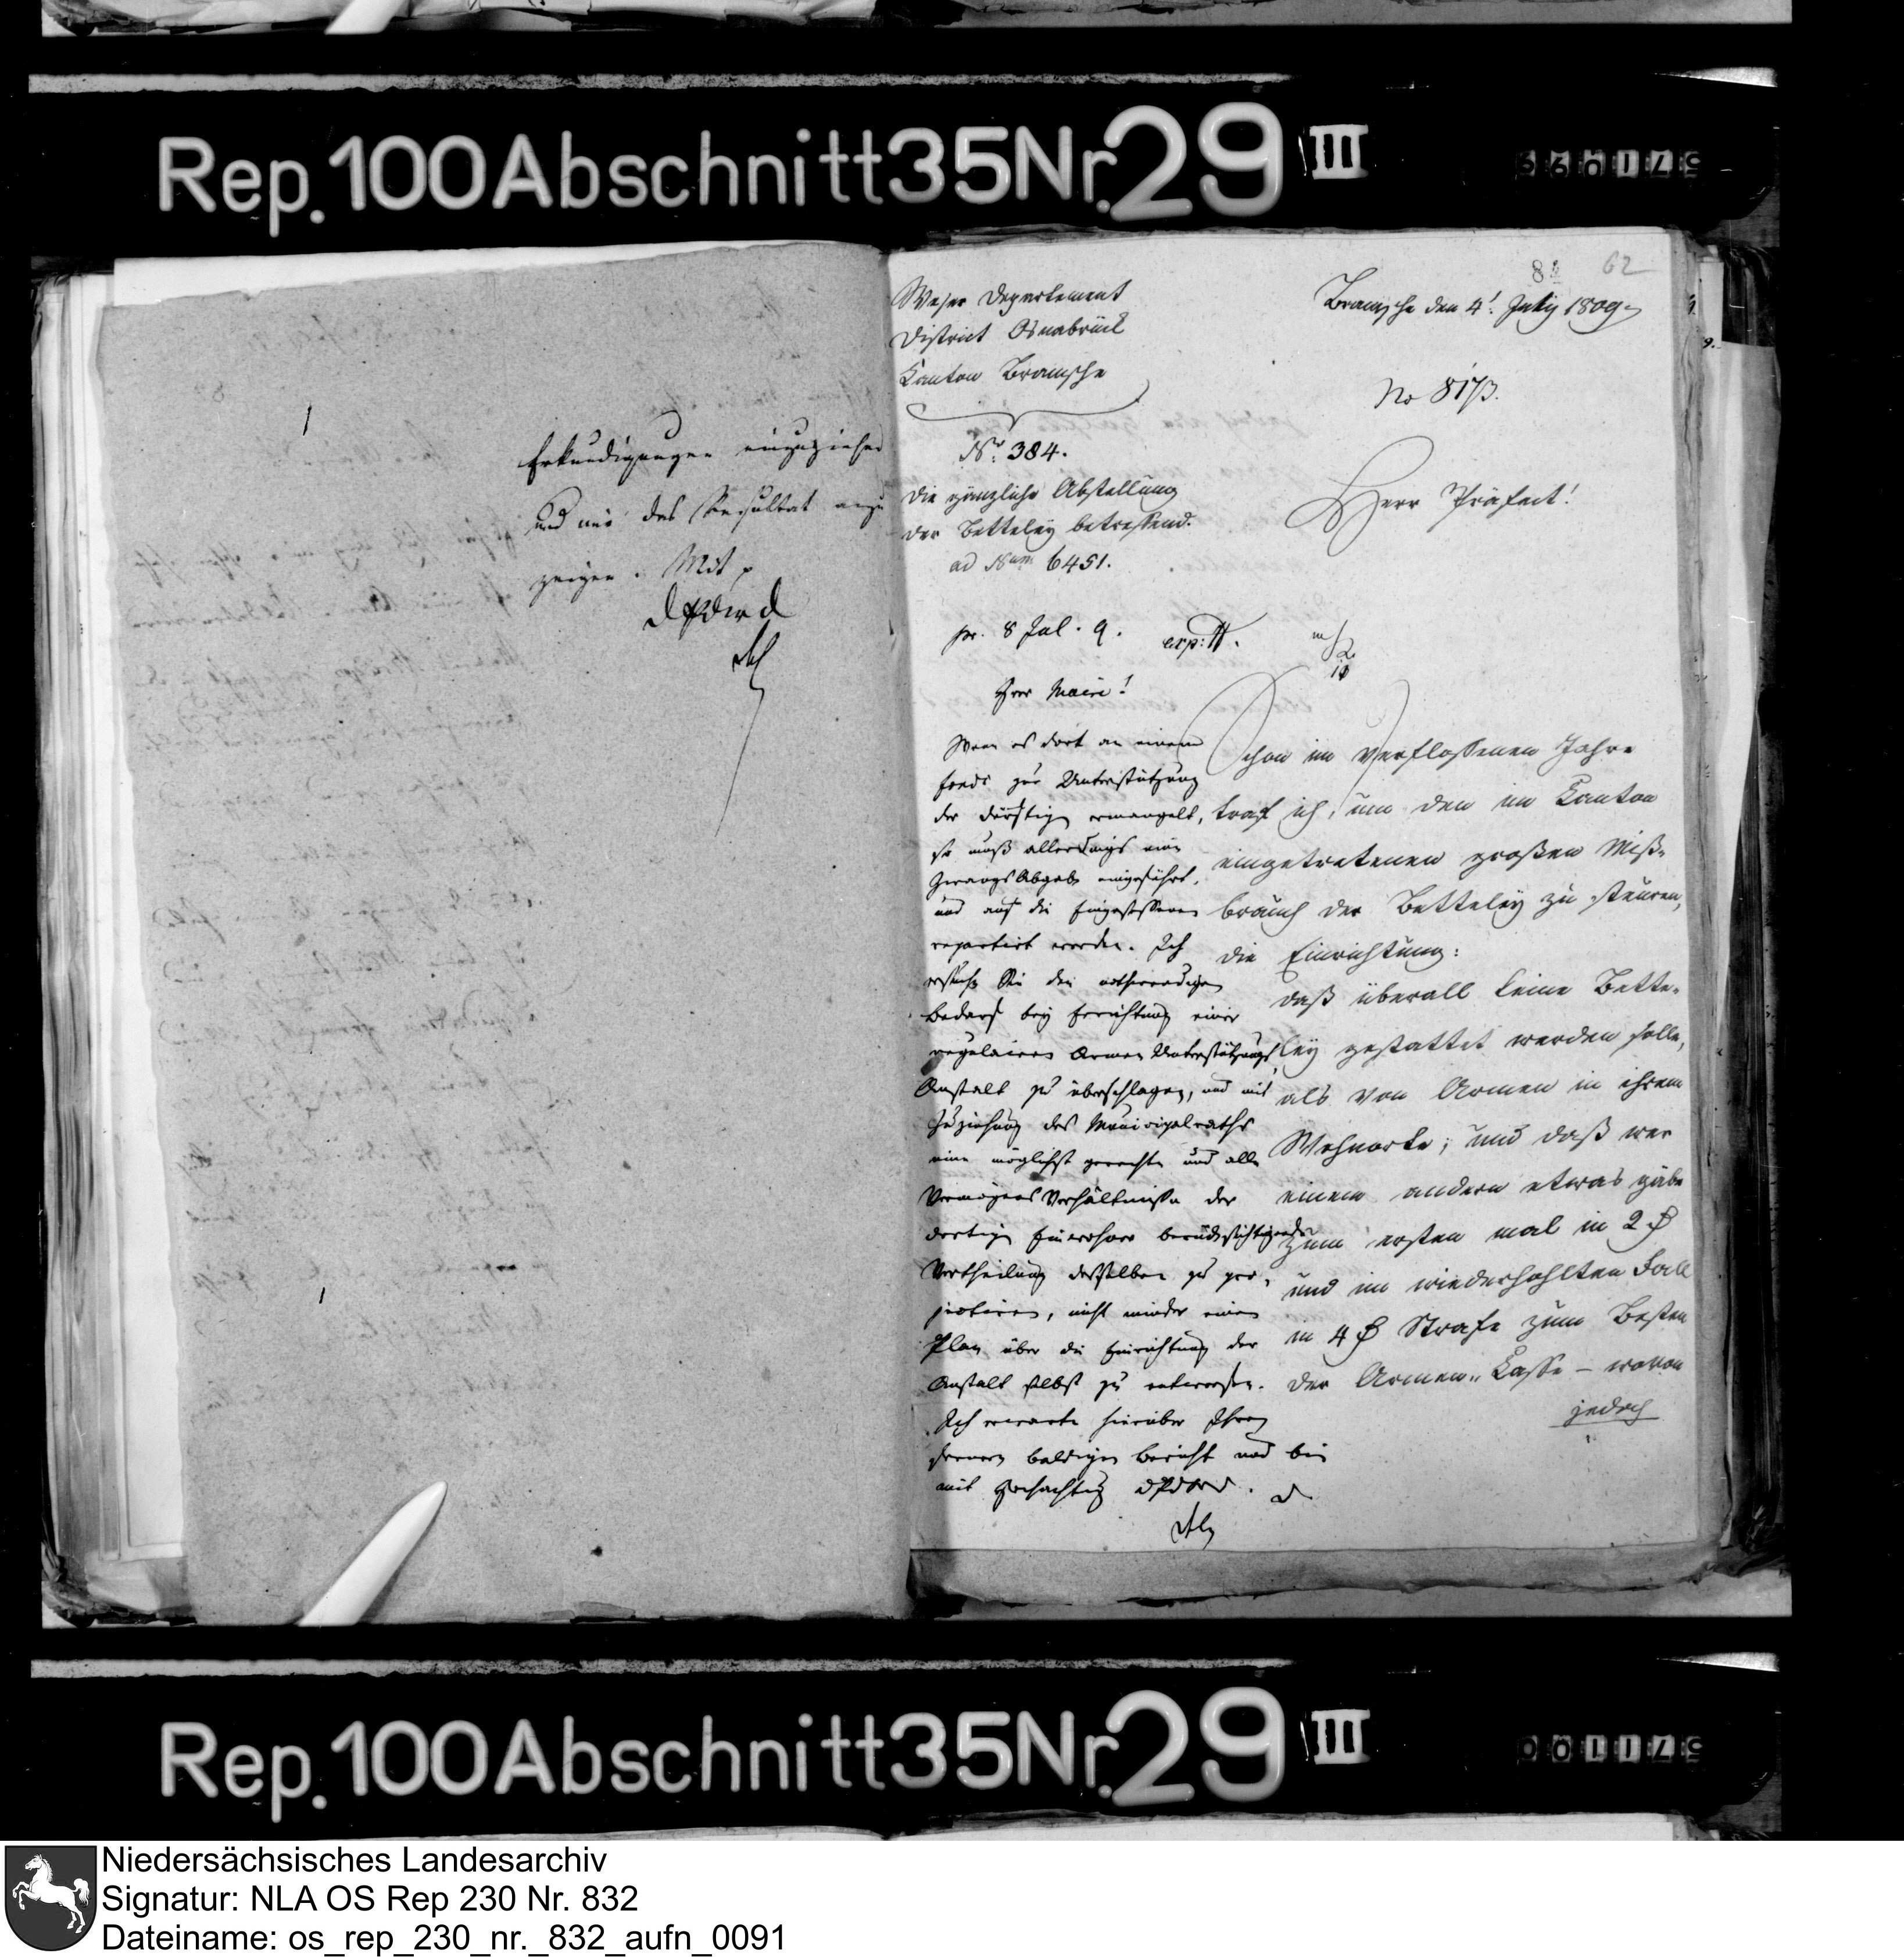 Rep. 100 Abschnitt 35 Nr. 29 III
Erkundigungen einzuziehen
und mir das Resultat anzu
zeigen. Mit
82
62
Weser Departement
District Osnabrück
Canton Bramsche
Nr. 384.
Die gänzliche Abstellung
der Betteley betreffend.
ad Num 6451.
pr. 8 Jul. 9.
Bramsche den 4t. July 1809
No 8173.
Herr Präfect!
Herr Maire!
Wenn es dort an einem
Fonds zur Unterstützung
der Dürftigen ermangelt,
so muß allerdings eine
Zwangs Abgabe eingeführt,
und auf die Eingesessenen
repartirt werden. Ich
ersuche Sie den nothwendigen
Bedarf bey Errichtung einer
regulairen Armen Unterstützungs
Anstalt zu überschlagen, und mit
Zuziehung des Municipalraths
eine möglichst gerechte und alle
Vermögens Verhältnisse der
dortigen Einwohner berücksichtigende
Vertheilung desselben zu pro-
jectiren, nicht minder einen
Plan über die Einrichtung der
Anstalt selbst zu entwerfen.
Ich erwarte hierüber Ihren
ferneren baldigen Bericht und bin
mit Hochachtung
Schon im verfloßenen Jahre
traf ich, um den im Canton
eingetretenen großen Miß-
brauch der Betteley zu steuren,
die Einrichtung:
daß überall keine Bette-
ley gestattet werden solle,
als von Armen in ihrem
Wohnorte; und daß wer
einem andern etwas gäbe
zum ersten mal in 2
und im wiederhohlten Fall
in 4 Strafe zum Besten
der Armen-Casse – wovon
jedoch
Rep. 100 Abschnitt 35 Nr. 29 III
Niedersächsisches Landesarchiv
Signatur: NLA OS Rep 230 Nr. 832
Dateiname: os_rep_230_nr._832_aufn_0091